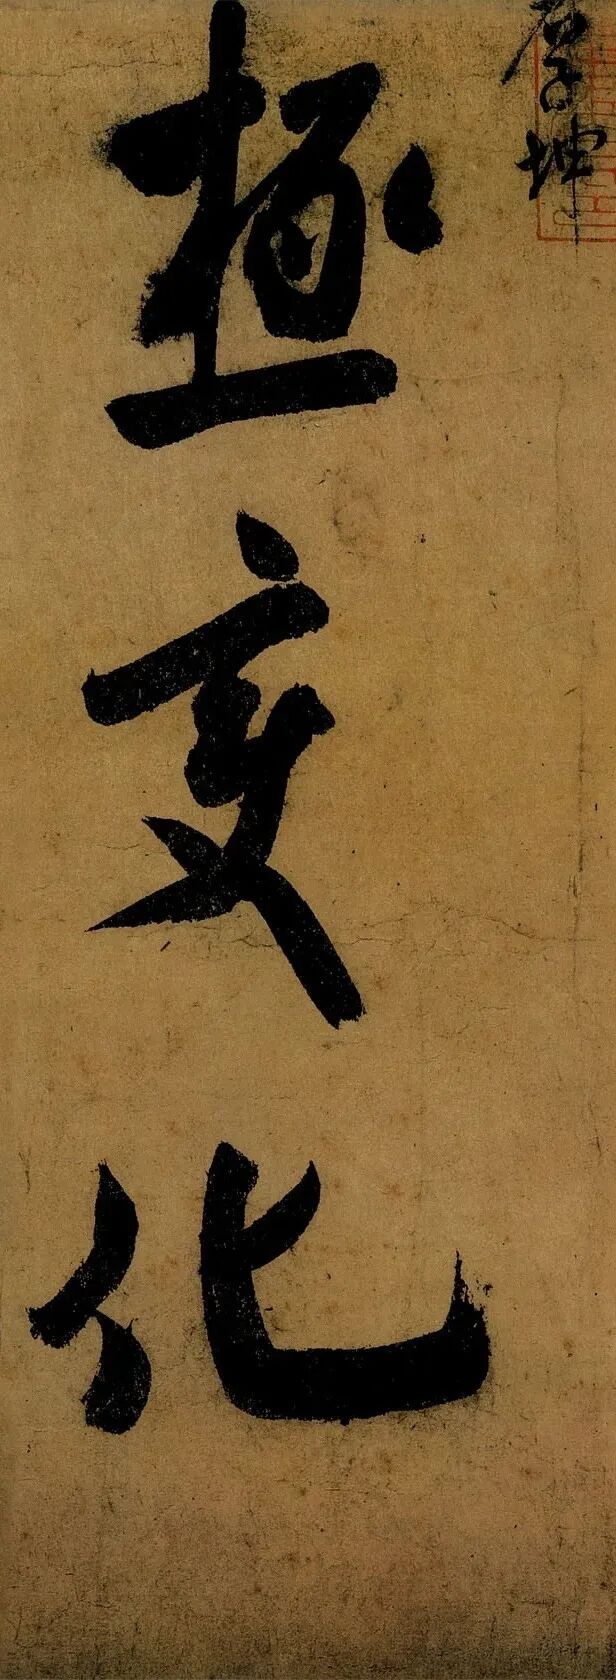 厚坤
極變化